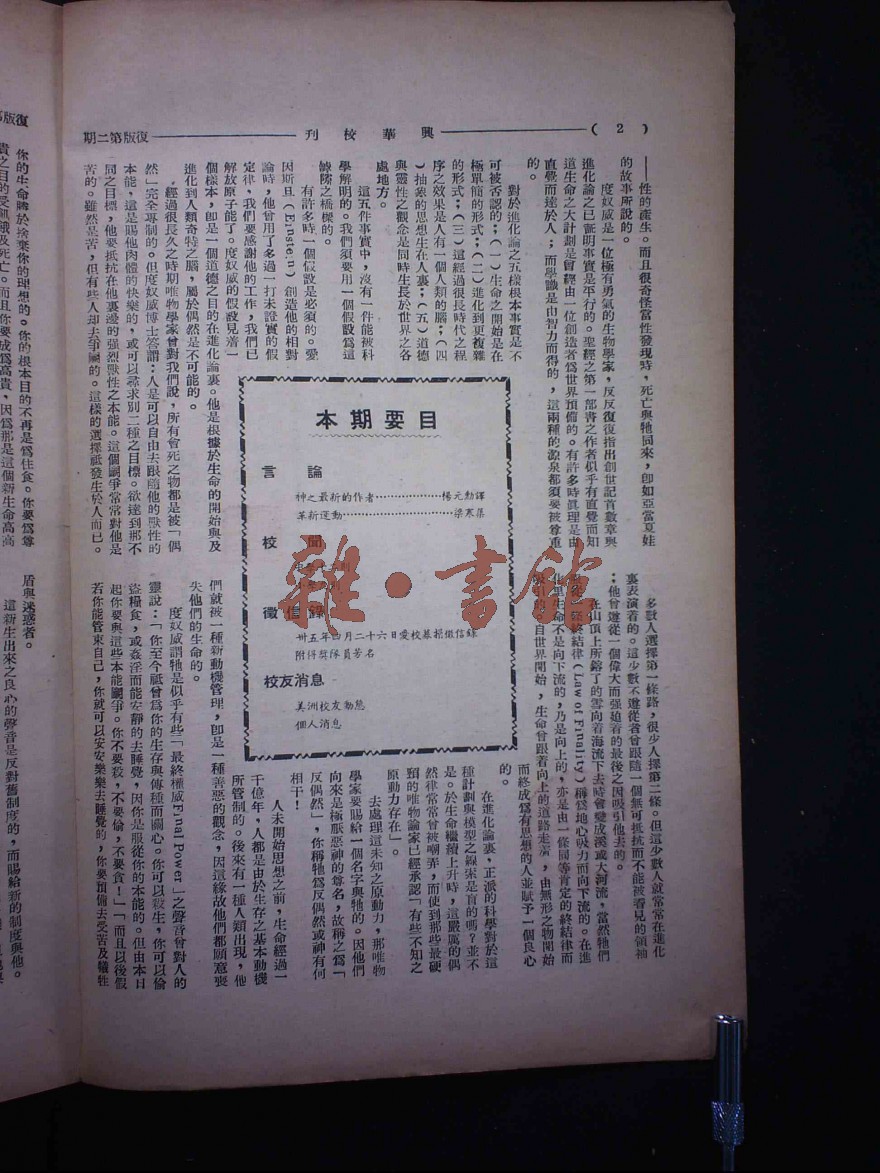 (2)
興華校刊
復版第二期
——性的產生。而且很奇怪當性發現時，死亡與牠同來，卽如亞當夏娃
的故事所說的。
度奴威是一位極有勇氣的生物學家，反反復復指出創世記首數章與
進化論之已證明事實是平行的。聖經之第一部書之作者似乎有直覺而知
道生命之大計劃是曾經由一位創造者爲世界預備的。有許多時眞理是由
直覺而達於人；而學識是由智力而得的，這兩種的源泉都須要被尊重
的。
對於進化論之五樣根本事實是不
可被否認的：(一)生命之開始是在
極單簡的形式；(二)進化到更複雜
的形式；(三)這經過很長時代之程
序之效果是人有一個人類的腦；(四
)抽象的思想生在人裏；(五)道德
與靈性之觀念是同時生長於世界之各
處地方。
這五件事實中，沒有一件能被科
學解明的。我們須要用一個假設爲這
罅隙之橋樑的。
有許多時一個假設是必須的。愛
因斯旦(Einstein)創造他的相對
論時，他曾用了多過一打未證實的假
定律，我們要感謝他的工作，我們已
解放原子能了。度奴威的假設見着一
個樣本，卽是一個道德之目的在進化論裏。他是根據於生命的開始與及
進化到人類奇特之腦，屬於偶然是不可能的。
經過很長久之時期唯物學家曾對我們說，所有會死之物都是被「偶
然」完全專制的。但度奴威博士答謂：人是可以自由去跟隨他的獸性的
本能，這是賜他肉體的快樂的，或可以尋求別二種之目標。欲達到那不
同之目標，他要抵抗在他裏邊的强烈獸性之本能。這個鬭爭常常對他是
苦的。雖然是苦，但有些人却去爭鬭的。這樣的選擇祇發生於人而已。
本期要目
言論
神之最新的作者……楊元勳譯
革新運動……梁寒菜
校聞
徵信錄
卅五年四月二十六日愛校募捐徵信錄
附得獎隊員芳名
校友消息
美洲校友動態
個人消息
雜·書館
多數人選擇第一條路，很少人擇第二條。但這少數人就常常在進化
裏表演着的。這少數不遵從者曾跟隨一個無可抵抗而不能被看見的領袖
；他曾遵從一個偉大而强迫着的最後之因吸引他去的。
在山頂上所鎔了的雪向着海流下去時會變成溪或大河流，當然牠們
終結律(Law of Finality)稱爲地心吸力而向下流的。在進
化里生命不是向下流的，乃是向上的，亦是由一條同等肯定的終結律而
吸引的。自世界開始，生命曾跟着向上的道路走㳺，由無形之物開始
而終成爲有思想的人並賦予一個良心
的。
在進化論裏，正派的科學對於這
種計劃與模型之線索是盲的嗎？並不
是。於生命繼續上升時，這嚴厲的偶
然律常常曾被嘲弄，而使到那些最硬
頸的唯物論家已經承認「有些不知之
原動力存在」。
去處理這未知之原動力，那唯物
學家要賜給一個名字與牠的。因他們
向來是極厭惡神的尊名，故稱之爲「
反偶然」，你稱牠爲反偶然或神有何
相干！
人未開始思想之前，生命經過一
千億年，人都是由於生存之基本動機
所管制的。後來有一種人類出現，他
們就被一種新動機管理，卽是一種善惡的觀念，因這緣故他們都願意喪
失他們的生命的。
度奴威謂牠是似乎有些「最終權威Final Power」之聲音曾對人的
靈說：「你至今祗曾爲你的生存與傳種而關心。你可以殺生，你可以偷
盜糧食，或姦淫而能安靜的去睡覺，因你是服從你的本能的。但由本日
起你要與這些本能鬭爭。你不要殺，不要偷，不要貪！」「而且以後假
若你能管束自己，你就可以安安樂樂去睡覺的，你要預備去受苦及犧牲
復版
你的生命勝於捨棄你的理想的。你的根本目的不再是爲住食。你要爲尊
貴之目的受飢餓及死亡。而且你要成爲高貴，因爲那是這個新生命高高
盾與迷惑者。
這新生出來之良心的聲音是反對舊制度的，而賜給新的制度與他。